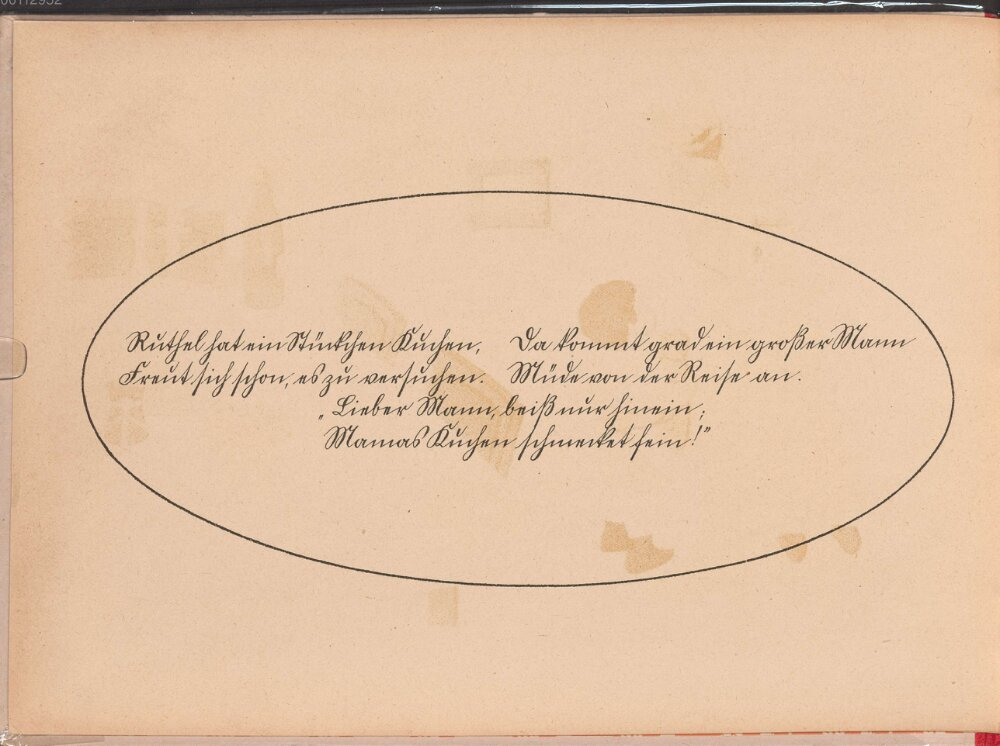 00112952
Ruthel hat ein Stückchen Kuchen,
Freut sich schon, es zu versuchen.
Da kommt grad ein großer Mann
Müde von der Reise an.
„Lieber Mann, beiß nur hinein;
Mamas Kuchen schmecket fein!”